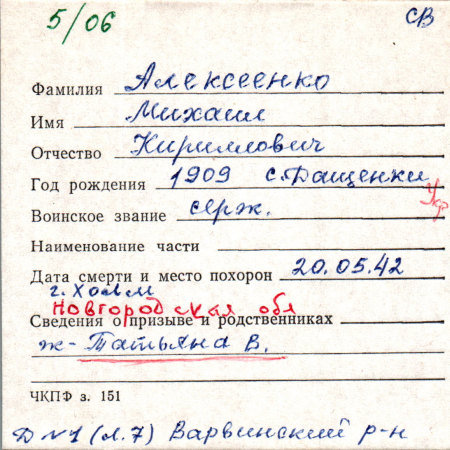 5/06 СВ
Фамилия Алексеенко
Имя Михаил
Отчество Кириллович
Год рождения 1909 с. Дащенки
Укр
Воинское звание серж.
Наименование части
Дата смерти и место похорон 20.05.42
г. Холм
Новгородская обл
Сведения о призыве и родственниках
ж- Татьяна В.
ЧКПФ з. 151
Д №1 (л.7) Варвинский р-н